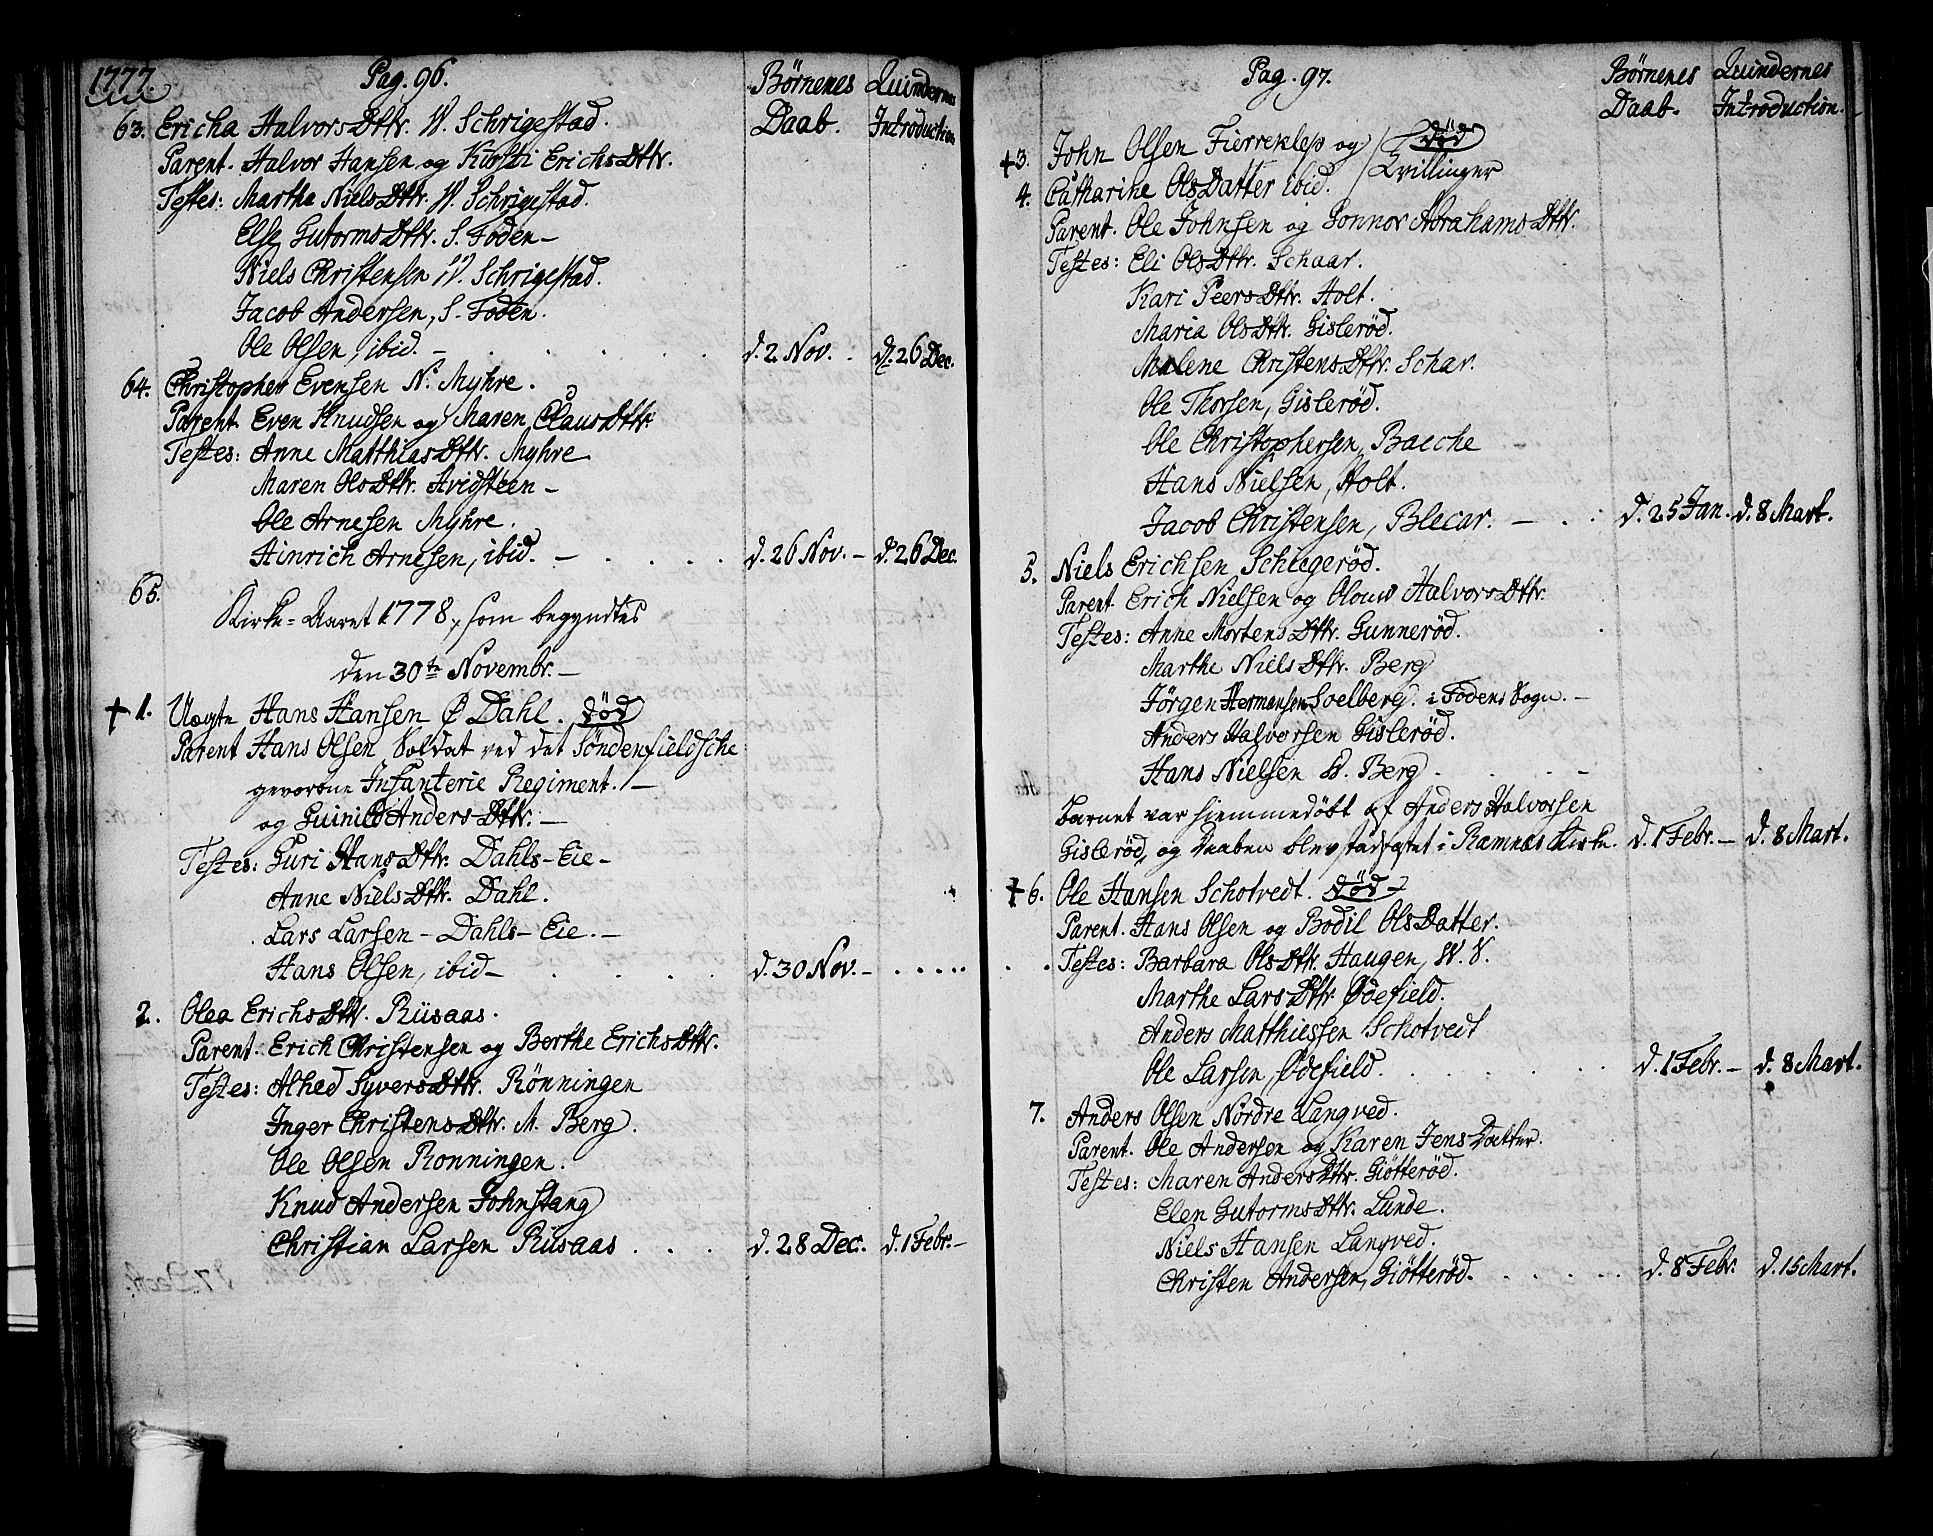 1777.
Pag. 96.
Börnenes Daab.
Quindernes Introduction
63. Ericha HalvorsDttr. W. Schrigestad.
Parent. Halvor Hansen og Kirsti ErichsDttr.
Testes: Martha NielsDttr. W. Schrigestad.
Else GutormsDttr. S. Foden –
Niels Christensen W. Schrigestad.
Jacob Andersen, S. Foden.
Ole Olsen, ibid. – d. 2 Nov. . d. 26 Dec.
64. Christopher Evensen N. Myhre.
Parent. Even Knudsen og Maren ClausDttr.
Testes: Anne MatthiasDttr. Myhre
Maren OlsDttr. Hvidsteen –
Ole Arnesen Myhre.
Hinrich Arnesen, ibid. – . . . . d. 26 Nov. – d. 26 Dec.
65.
Kirke-Aaret 1778, som begyndtes
den 30te Novembr. –
+ 1. Uægte Hans Hansen Ø Dahl. död
Parent Hans Olsen Soldat ved det Söndenfieldsche
gevorbne Infanterie Regiment. –
og Guinild AndersDttr. –
Testes: Guri HansDttr. Dahls-Eie –
Anne NielsDttr. Dahl.
Lars Larsen – Dahls-Eie. –
Hans Olsen, ibid – . . . . d. 30 Nov. – . . . . .
2. Olea ErichsDttr. Rüsaas.
Parent. Erich Christensen og Berthe ErichsDttr.
Testes: Alhed SyversDttr. Rönningen
Inger ChristensDttr. M. Berg.
Ole Olsen Ronningen.
Knud Andersen Fohnstang
Christian Larsen Rüsaas . . . d. 28 Dec. d. 1 Febr. –
Pag. 97.
Börnenes Daab.
Quindernes Introduction.
+ 3. John Olsen Fierreklep og död
4. Catharine OlsDatter ibid. Tvillinger
Parent. Ole Johnsen og Gonnor AbrahamsDttr.
Testes: Eli OlsDttr. Schaar.
Kari PeersDttr. Holt.
Maria OlsDttr. Gisleröd.
Malene ChristensDttr. Schar.
Ole Thorsen, Gisleröd.
Ole Christophersen, Bacche
Hans Nielsen, Holt.
Jacob Christensen, Blecar. – . . d. 25 Jan. d. 8 Mart.
5. Niels Erichsen Schugeröd.
Parent. Erich Nielsen og Olouv HalvorsDttr.
Testes: Anne MortensDttr. Gunneröd.
Marthe NielsDttr. Berg
Jörgen Hermansen Soelberg. i Fodens Sogn. –
Anders Halvorsen Gisleröd.
Hans Nielsen W. Berg . . . –
Barnet var hiemmedöbt af Anders Halvorsen
Gisleröd, og Daaben blev stadfæstet i Ramnæs Kirke. d. 1 Febr. – d. 8 Mart.
+ 6. Ole Hansen Schotvedt. död
Parent. Hans Olsen og Bodil OlsDatter.
Testes: Barbara OlsDttr. Haugen, W. V.
Marthe LarsDttr. Ødefield.
Anders Matthiessen Schotvedt
Ole Larsen, Ødefield. . . . . d. 1 Febr. – d. 8 Mart.
7. Anders Olsen Nördre Langved.
Parent. Ole Andersen og Karen JensDatter.
Testes: Maren AndersDttr. Giötteröd.
Elen GutormsDttr. Lunde.
Niels Hansen Langved.
Christen Andersen, Giötteröd. . . . . . d. 8 Febr. d. 15 Mart.